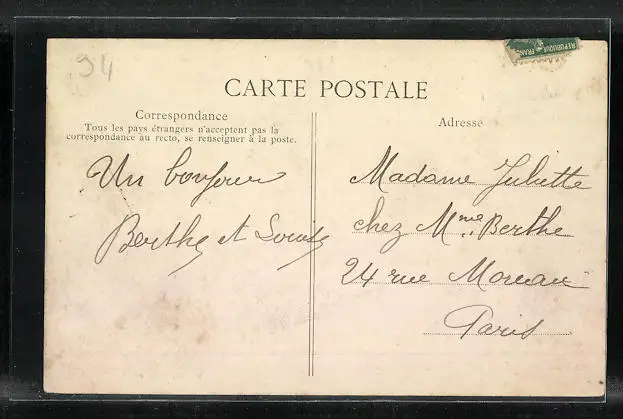 94
REPUBLIQUE FRANC
CARTE POSTALE
Correspondance
Tous les pays étrangers n'acceptent pas la
correspondance au recto, se renseigner à la poste.
Adresse
Un bonjour
Berthe et Louise
Madame Juliette
chez Mme Berthe
24 rue Moreau
Paris